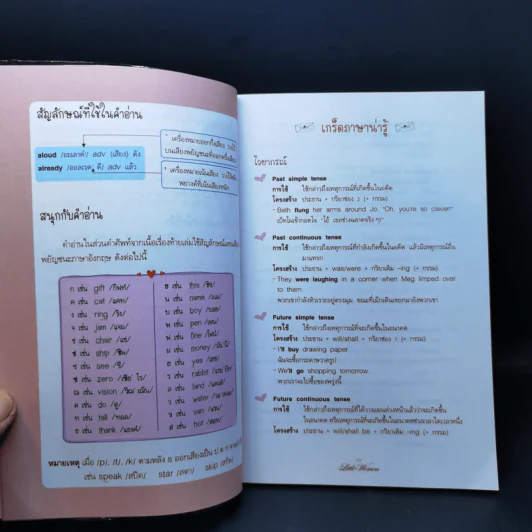 สัญลักษณ์ที่ใช้ในคำอ่าน
aloud /อะเลาด์/ adv (เสียง) ดัง
already
adv แล้ว
สนุกกับคำอ่าน
คำอ่านในส่วนคำศัพท์จากเนื้อเรื่องท้ายเล่มใช้สัญลักษณ์แทนเสียง
พยัญชนะภาษาอังกฤษ ดังต่อไปนี้
ก เช่น gift /กิฟท์/
ค เช่น cat /แคท/
ง เช่น ring /ริง/
จ เช่น jam /แจม/
ช เช่น chair /แช/
ช เช่น ship /ชิพ/
ซ เช่น see /ซี/
เช่น zero
เช่น vision
ด เช่น do /ดู/
ท เช่น tall /ทอล/
ธ เช่น thank /แธงค์/
เช่น this
น เช่น name /เนม/
บ เช่น boy /บอย/
พ เช่น pen /เพน/
ฟ เช่น fine /ไฟน์/
ม เช่น money
ย เช่น yes /เยส/
ร เช่น rabbit
ล เช่น land /แลนด์/
ว เช่น water
ว เช่น van /แวน/
ฮ เช่น hot /ฮอท/
หมายเหตุ เมื่อ /p/, /t/, /k/ ตามหลัง s ออกเสียงเป็น
เช่น speak /สปีค/ star /สตา/ skip /สคิพ/
เกร็ดภาษาน่ารู้
ไวยากรณ์
Past simple tense
การใช้ ใช้กล่าวถึงเหตุการณ์ที่เกิดขึ้นในอดีต
โครงสร้าง ประธาน + กริยาช่อง 2 (+ กรรม)
- Beth flung her arms around Jo. "Oh, you're so clever!"
Past continuous tense
การใช้ ใช้กล่าวถึงเหตุการณ์ที่กำลังเกิดขึ้นในอดีต แล้วมีเหตุการณ์อื่น
มาแทรก
โครงสร้าง ประธาน + was/were + กริยาเติม -ing (+ กรรม)
- They were laughing in a corner when Meg limped over
to them.
พวกเขากำลังหัวเราะอยู่ตรงมุม ขณะที่เม็กเดินเขยกมาถึงพวกเขา
Future simple tense
การใช้ ใช้กล่าวถึงเหตุการณ์ที่จะเกิดขึ้นในอนาคต
โครงสร้าง ประธาน + will/shall + กริยาช่อง 1 (+ กรรม)
- I'll buy drawing paper.
ฉันจะซื้อกระดาษวาดรูป
- We'll go shopping tomorrow.
พวกเราจะไปซื้อของพรุ่งนี้
Future continuous tense
การใช้ ใช้กล่าวถึงเหตุการณ์ที่ได้วางแผนล่วงหน้าแล้วว่าจะเกิดขึ้น
ในอนาคต หรือเหตุการณ์ที่จะเกิดขึ้นในอนาคตช่วงเวลาใดเวลาหนึ่ง
โครงสร้าง ประธาน + will/shall be + กริยาเติม -ing (+ กรรม)
Little Women